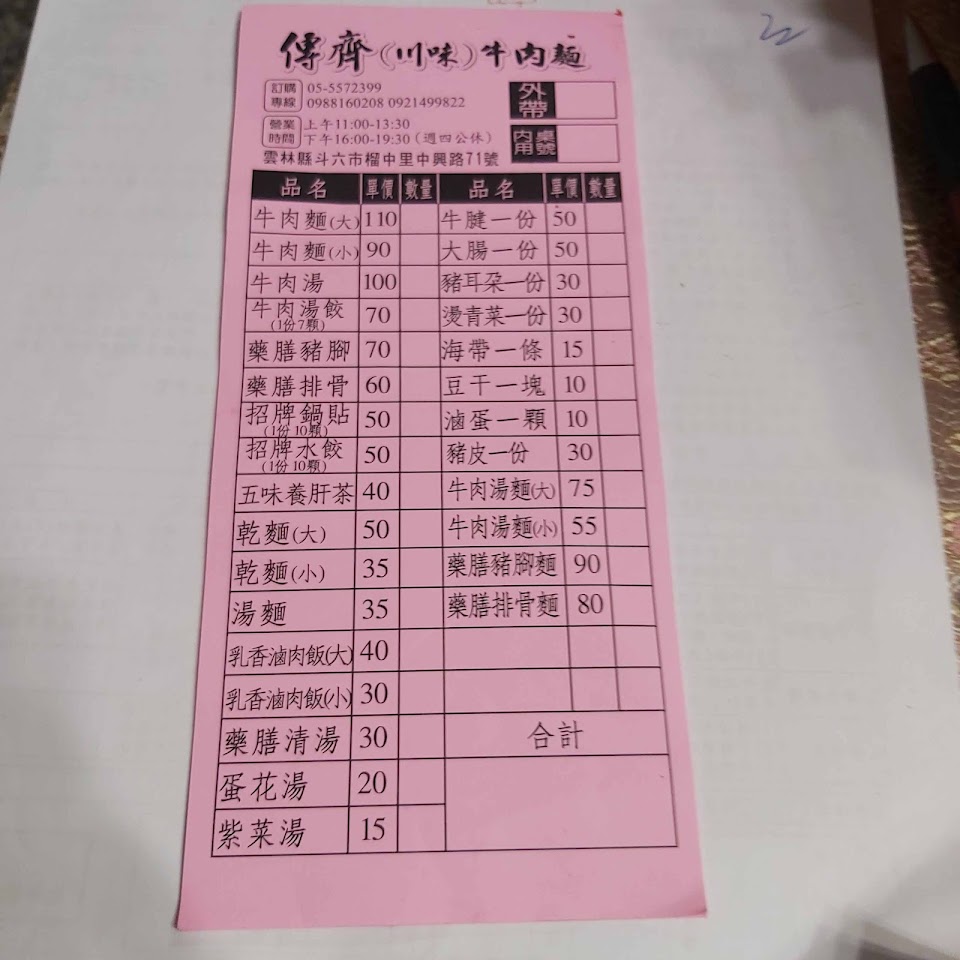 傳齊(川味)牛肉麵
訂購專線 05-5572399
0988160208 0921499822
營業時間 上午11:00-13:30
下午16:00-19:30(週四公休)
雲林縣斗六市榴中里中興路71號
外帶
內用 桌號
品名 單價 數量 品名 單價 數量
牛肉麵(大) 110 牛腱一份 50
牛肉麵(小) 90 大腸一份 50
牛肉湯 100 豬耳朵一份 30
牛肉湯餃(1份7顆) 70 燙青菜一份 30
藥膳豬腳 70 海帶一條 15
藥膳排骨 60 豆干一塊 10
招牌鍋貼(1份10顆) 50 滷蛋一顆 10
招牌水餃(1份10顆) 50 豬皮一份 30
五味養肝茶 40 牛肉湯麵(大) 75
乾麵(大) 50 牛肉湯麵(小) 55
乾麵(小) 35 藥膳豬腳麵 90
湯麵 35 藥膳排骨麵 80
乳香滷肉飯(大) 40
乳香滷肉飯(小) 30
藥膳清湯 30 合計
蛋花湯 20
紫菜湯 15